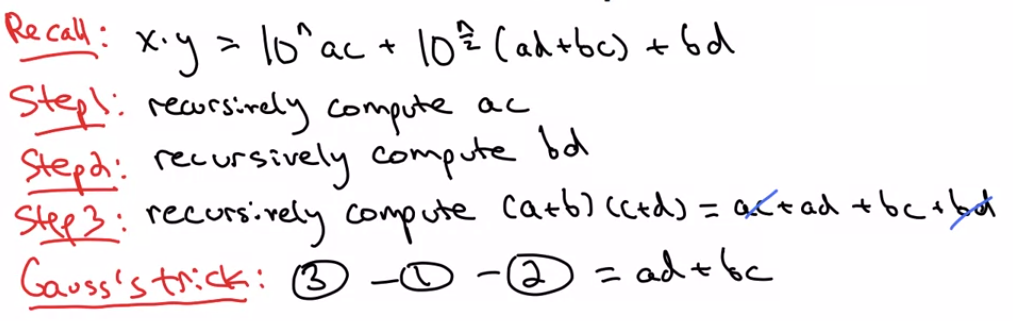 Recall: x·y = 10^n ac + 10^(n/2) (ad+bc) + bd
Step1: recursively compute ac
Step2: recursively compute bd
Step3: recursively compute (a+b)(c+d) = ac+ad+bc+bd
Gauss's trick: ③ - ① - ② = ad+bc